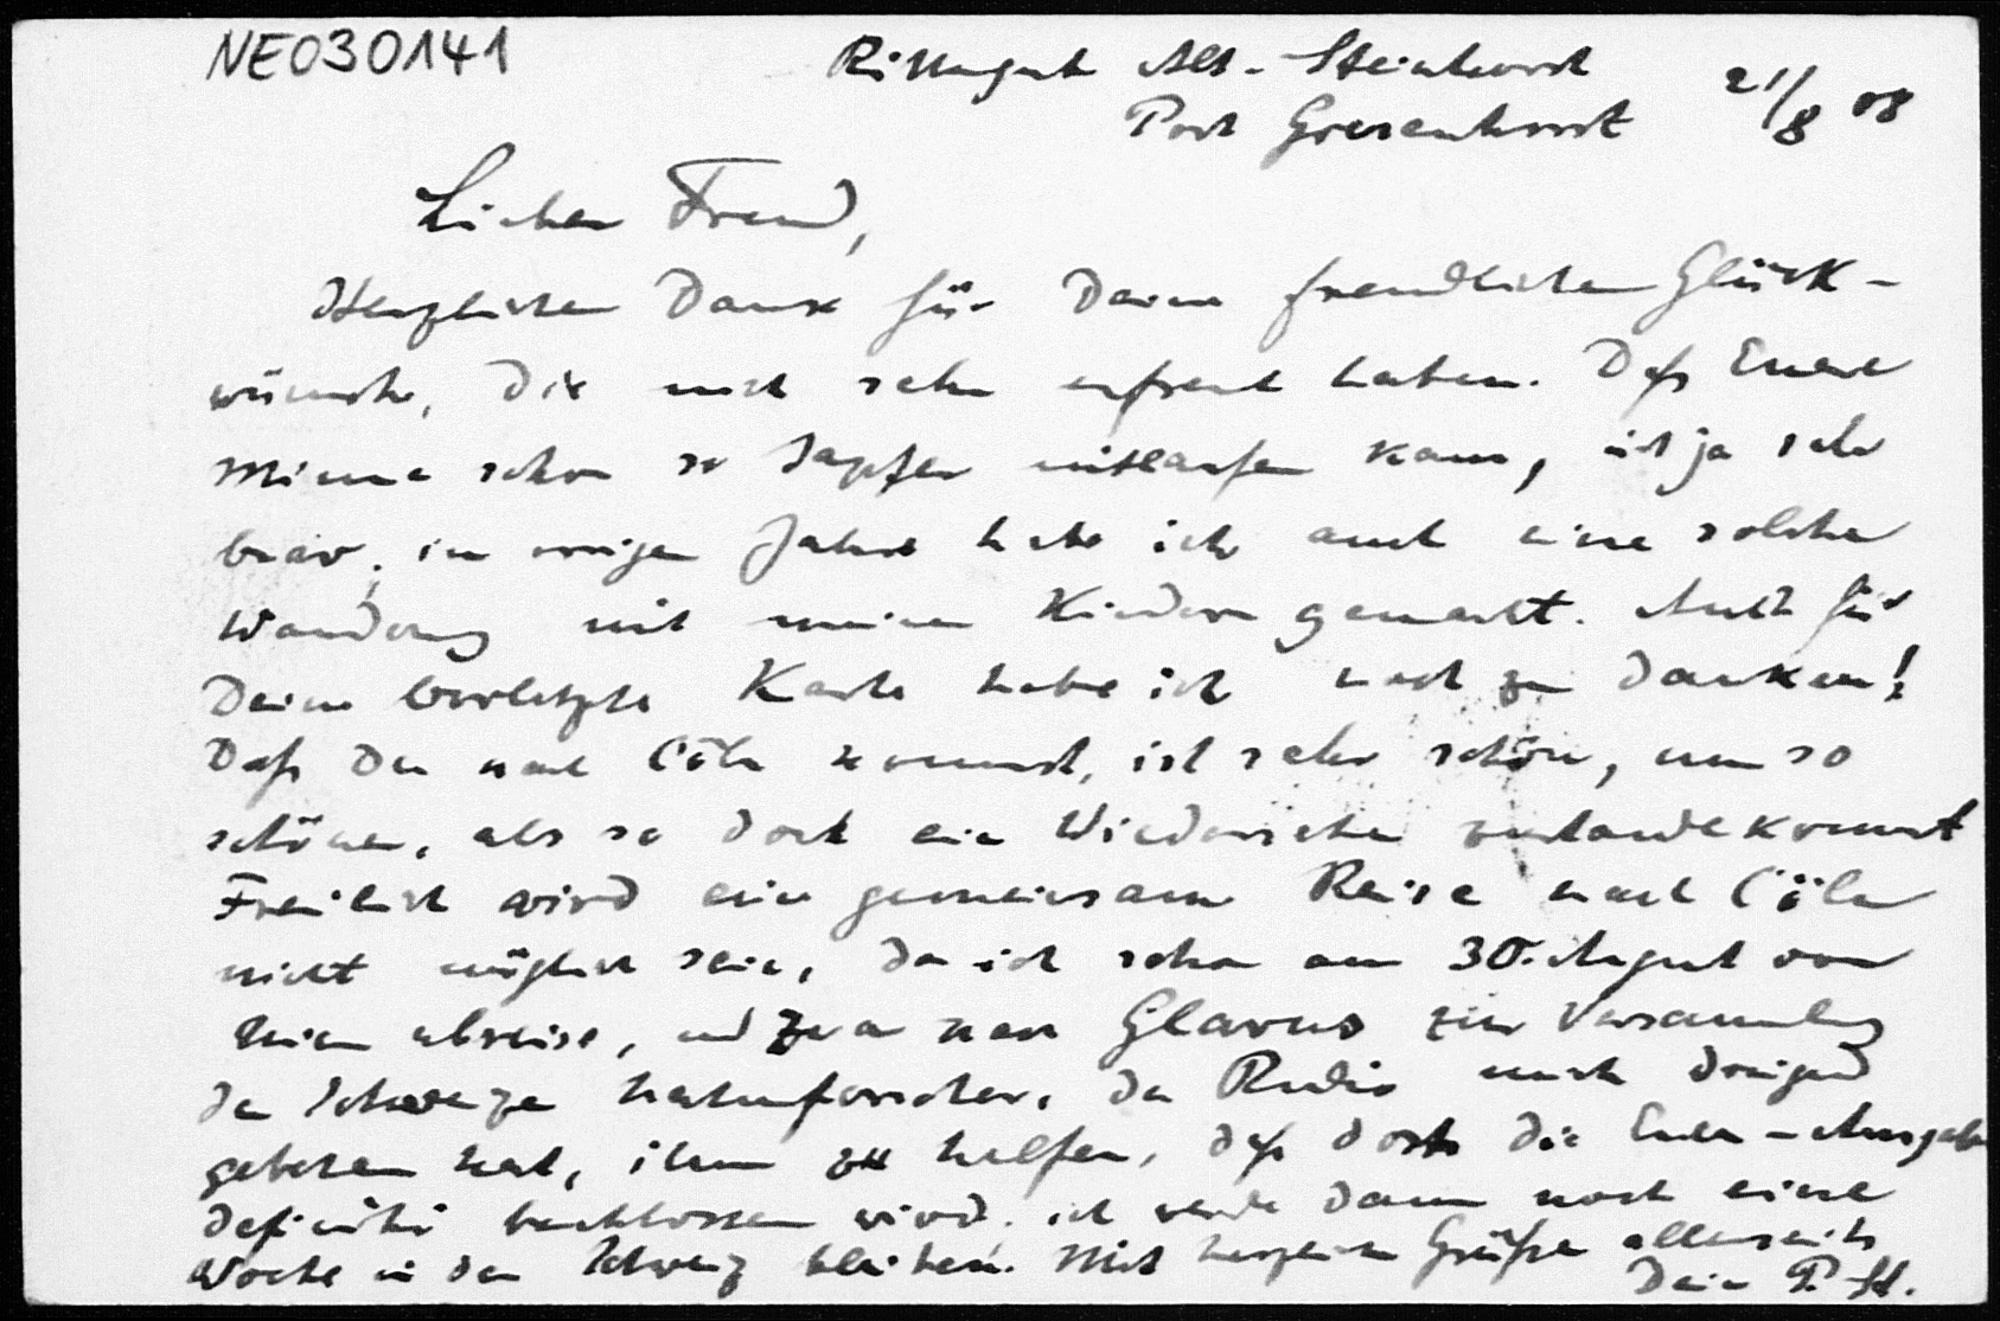 NE030141
Rittergut Alt-Steinhorst
Post Gresenhorst 21/8 08
Lieber Freund,
Herzlichen Dank für Deine freundlichen Glück-
wünsche, die mich sehr erfreut haben. Daß Euere
Minna schon so tapfer mitlaufen kann, ist ja sehr
brav; im vorigen Jahre habe ich auch eine solche
Wanderung mit meinen Kindern gemacht. Auch für
Deine vorletzte Karte habe ich noch zu danken!
Daß Du nach Cöln kommst, ist sehr schön, um so
schöner, als so doch ein Wiedersehen zustandekommt
Freilich wird eine gemeinsame Reise nach Cöln
nicht möglich sein, da ich schon am 30. August von
hier abreise, und zwar nach Glarus zur Versammlung
der Schweizer Naturforscher, da Rudio mich dringend
gebeten hat, ihm zu helfen, daß dort die Euler-Ausgabe
definitiv beschlossen wird; ich werde dann noch eine
Woche in der Schweiz bleiben. Mit herzlichen Grüßen allerseits
Dein P. St.